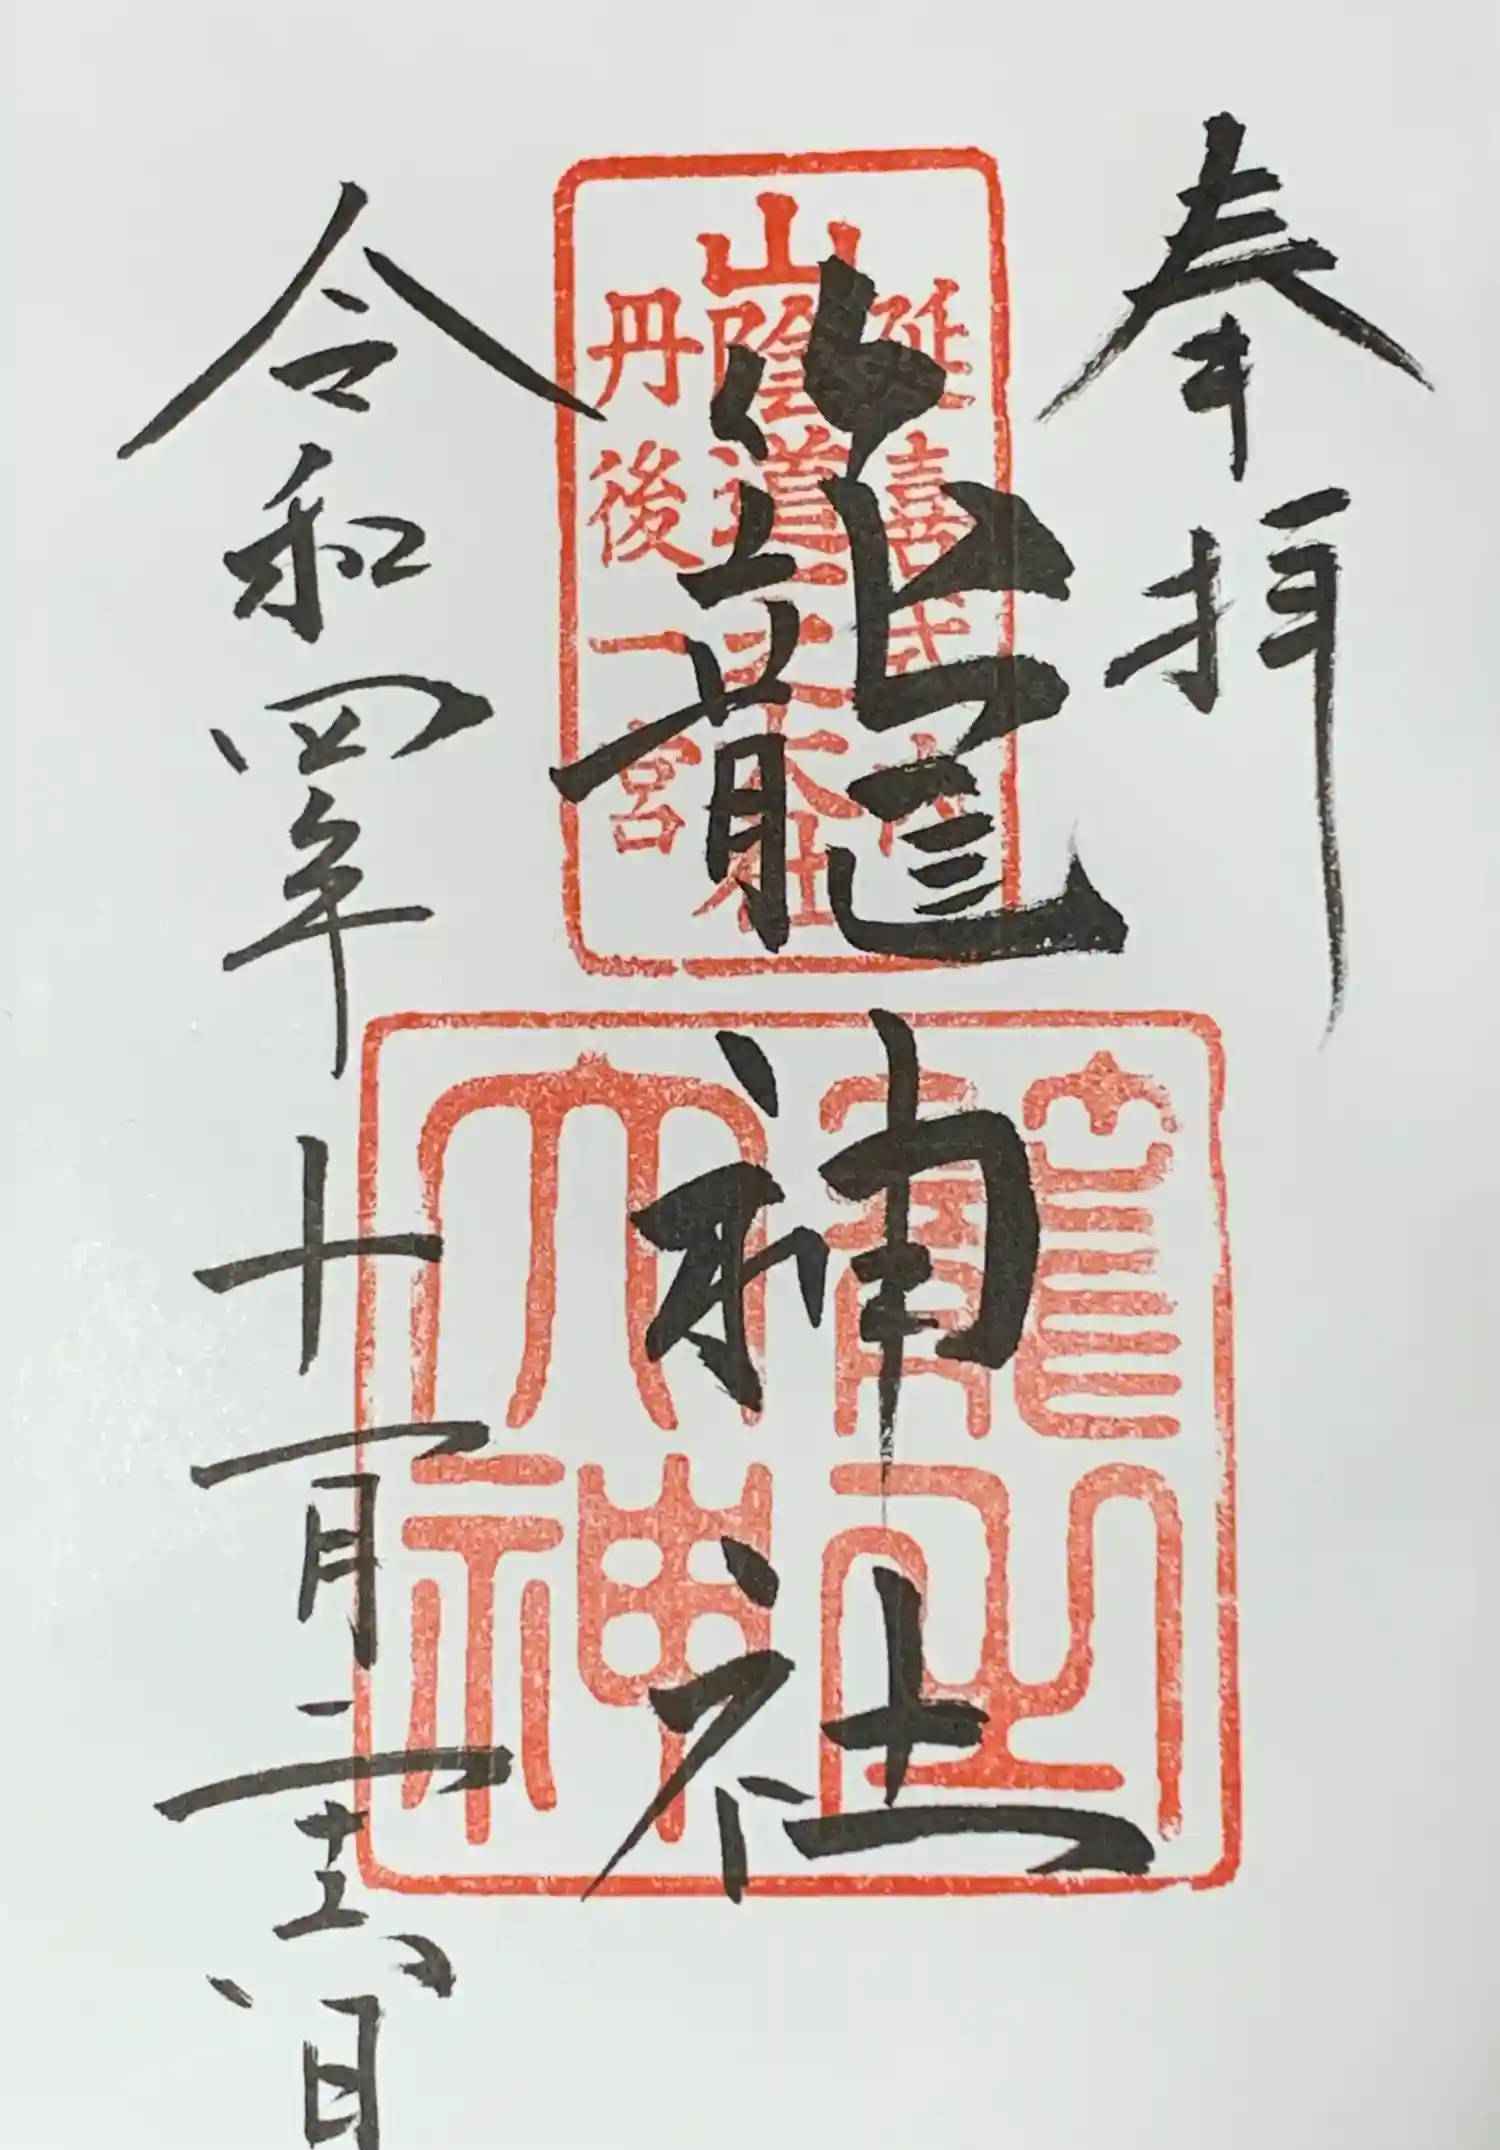 奉拝
延喜式内
山陰道一之大社
丹後一宮
籠神社
籠之大神
令和四年十一月二十六日